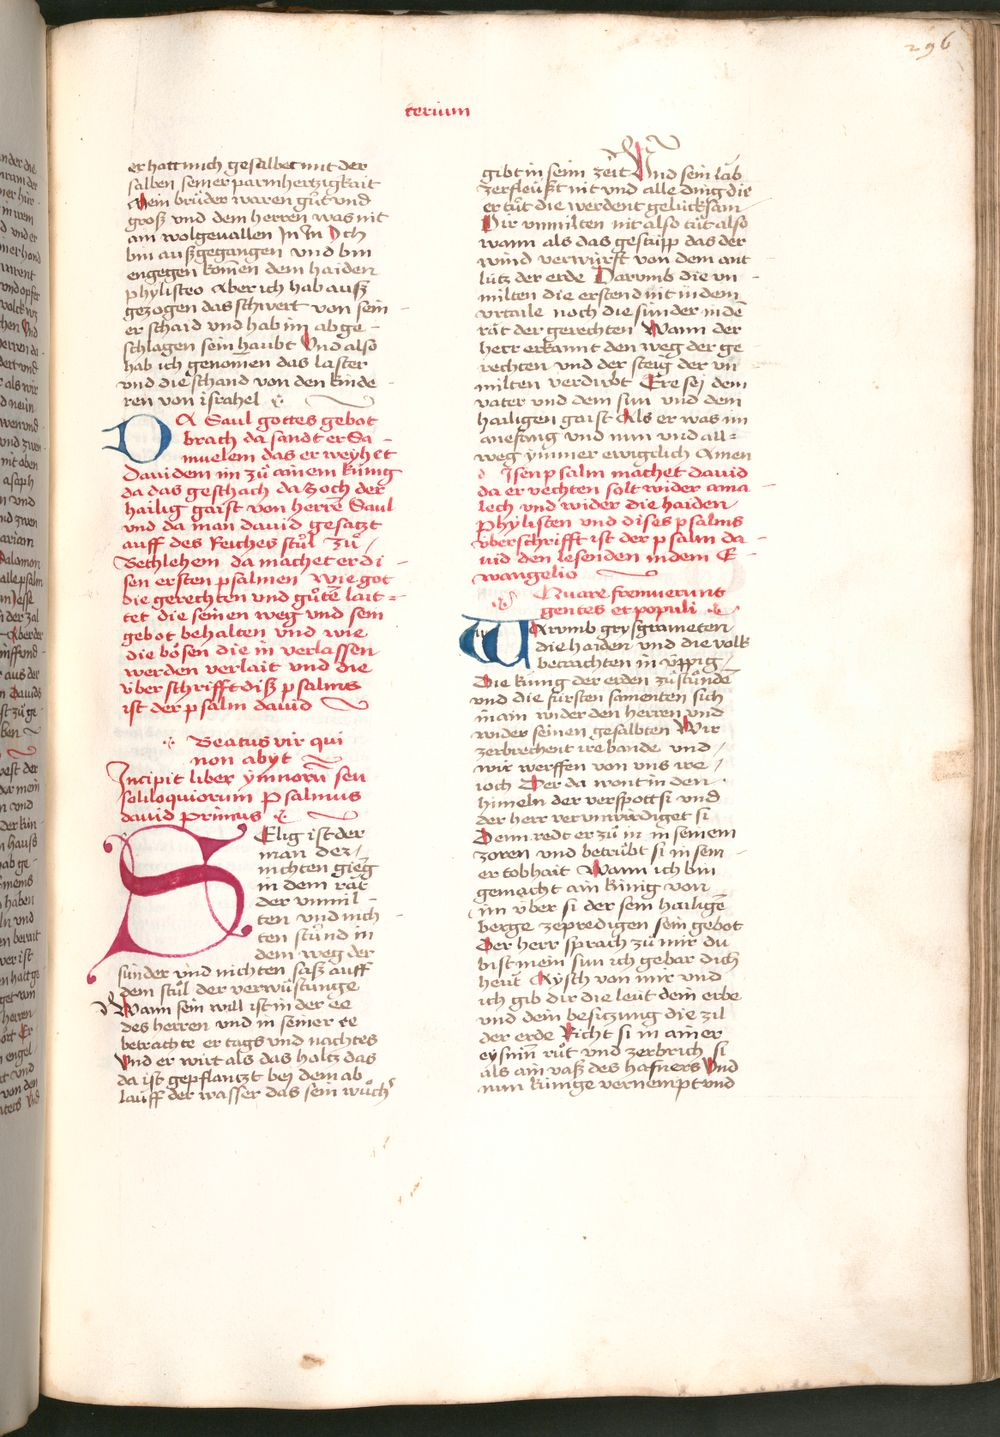 296
terium
er hatt mich gesalbet mit der
salben seiner parmhertzigkait
Mein brüder waren gůt vnd
groß vnd dem herren was nit
am wolgevallen In In Ich
bin außgegangen vnd bin
engegen komen dem haiden
phylisteo Aber ich hab auß
gezogen das schwert von sein
er schaid vnd hab im abge
schlagen sein haubt Vnd also
hab ich genomen das laster
vnd die schand von den kinde
ren von israhel
DA Saul gottes gebot
brach da sandt er Sa
muelem das er weyhet
Dauidem im zů ainem künig
da das geschach da zoch der
hailig gaist von herrē Saul
vnd da man dauid gesatzt
auff des Reiches stůl zů
Bethlehem da machet er di
sen ersten psalmen wie got
die gerechten vnd gůtē lait
tet die seinen weg vnd sein
gebot behalten vnd wie
die bösen die in verlassen
werden verlait vnd die
überschrifft diß psalms
ist der psalm dauid
Beatus vir qui
non abyt
Incipit liber ymnorū seu
soliloquiorum Psalmus
dauid primus
SElig ist der
man der
nichten gieg
in dem rāt
der vnmil
ten vnd nich
ten stůnd in
dem weg der
sünder vnd nichten saß auff
dem stůl der verwüstunge
Wann sein will ist in der ee
des herren vnd in seiner ee
betrachte er tags vnd nachtes
Vnd er wirt als das holtz das
da ist gepflantzt bej dem ab
lauff der wasser das sein wůchs
gibt in seiner zeit Vnd sein lāb
zerfleüßt nit vnd alle ding die
er tůt die werdent gelücksam
Dir vnmilten nit also nit also
wann als das gestüpp das der
wind verwürft von dem ant
lütz der erde Darumb die vn
milten die erstend nit in dem
vrtaile noch die sünder in dē
rāt der gerechten Wann der
herr erkannt den weg der ge
rechten vnd der steig der vn
milten verdirbt Ere sej dem
vater vnd dem sun vnd dem
hailigen gaist Als er was im
anefang vnd nun vnd all
weg ymmer ewigclich Amen
Disen psalm machet dauid
da er vechten solt wider ama
lech vnd wider die haiden
Phylisten vnd dises psalms
überschrifft ist der psalm da
uid den lesenden in dem E
wangelio
Quare fremuerunt
gentes et populi
WArumb grysgrameten
die haiden vnd die volk
betrachten in vppig
Die künig der erden zůstůnden
vnd die fürsten samenten sich
in ain wider den herren vnd
wider seinen gesalbten Wir
zerbrechent ire bande vnd
wir werffen von vns ire
ioch Der da wont in den
himeln der verspott si vnd
der herr vervnwirdiget si
Denn redt er zů in in seinem
zoren vnd betrübt si in sein
er tobhait Wann ich bin
gemacht ain künig von
im über si der sein hailigē
berge ze predigen sein gebot
Der herr sprach zů mir du
bist mein sun ich gebar dich
heüt Aysch von mir vnd
ich gib dir die leüt dein erbe
vnd dein besitzung die zil
der erde Richt si in ainer
eysnin růt vnd zerbrich si
als ain vaß des hafners Vnd
nun künige vernempt vnd